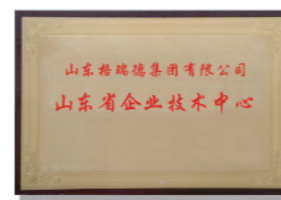 山东格瑞德集团有限公司
山东省企业技术中心